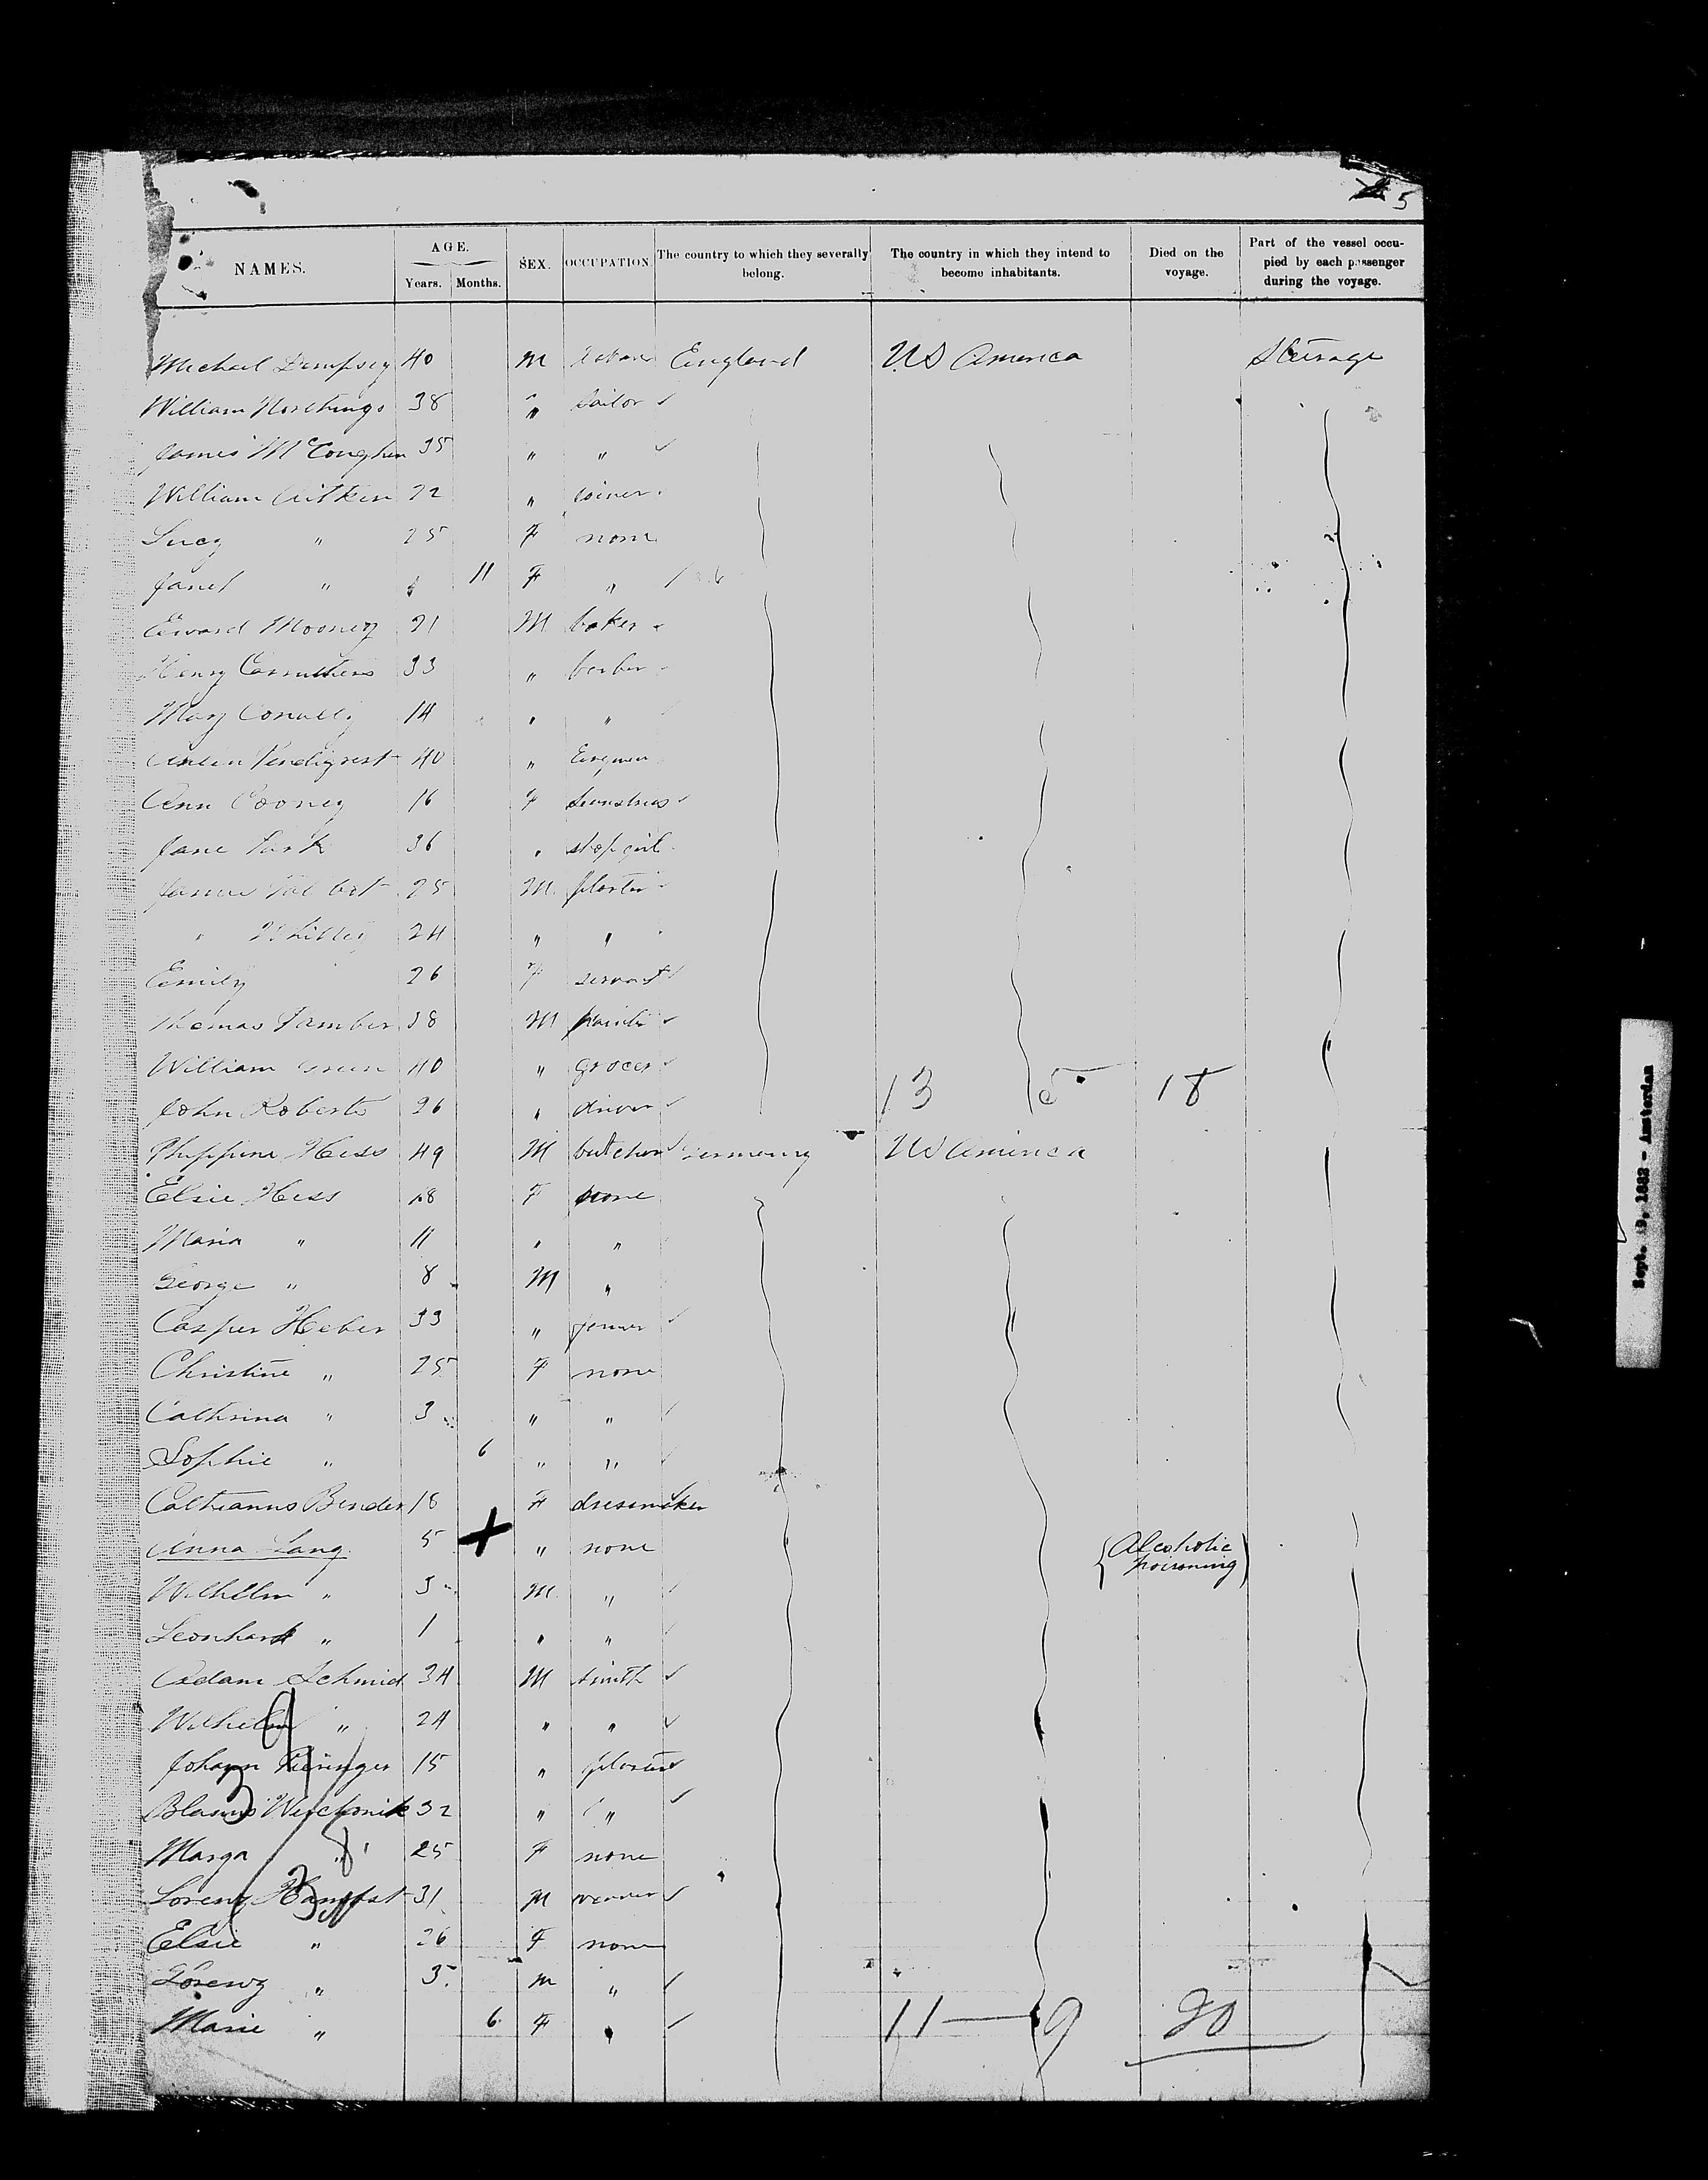 5
NAMES. AGE. Years. Months. SEX. OCCUPATION. The country to which they severally belong. The country in which they intend to become inhabitants. Died on the voyage. Part of the vessel occupied by each passenger during the voyage.
Michael Dempsey 40 M England US America Steerage
William 38 " Tailor
James 35 " "
William Aitken 22 " Joiner
Lucy " 25 F none
Janet " 11 F "
Edward Mooney 21 M baker
Henry Carruthers 33 " barber
Mary Conolly 14 " "
40 "
Ann Cooney 16 F
Jane Park 36 " shop girl
James Talbot 25 M
" 24 " "
Emily 26 F servant
Thomas 38 M
William Green 40 " grocer
John Roberts 26 " driver 13 5 18
Phippine Hess 49 M butcher Germany US America
Elsie Hess 18 F none
Maria " 11 " "
George " 8 M "
Casper Heber 33 "
Christine " 25 F none
Cathrina " 3 " "
Sophie " 6 " "
Binder 18 F dressmaker
Anna Lang 5 " none Alcoholic poisoning
Wilhelm " 3 M "
Leonhard " 1 " "
Adam Schmid 34 M smith
Wilhelm " 24 " "
Johann 15 "
32 " "
Marga " 25 F none
Lorenz 31 M
Elsie " 26 F none
Lorenz " 3 M "
Marie " 6 F " 11 — 9 20
Sept. 19, 1882 - Amsterdam